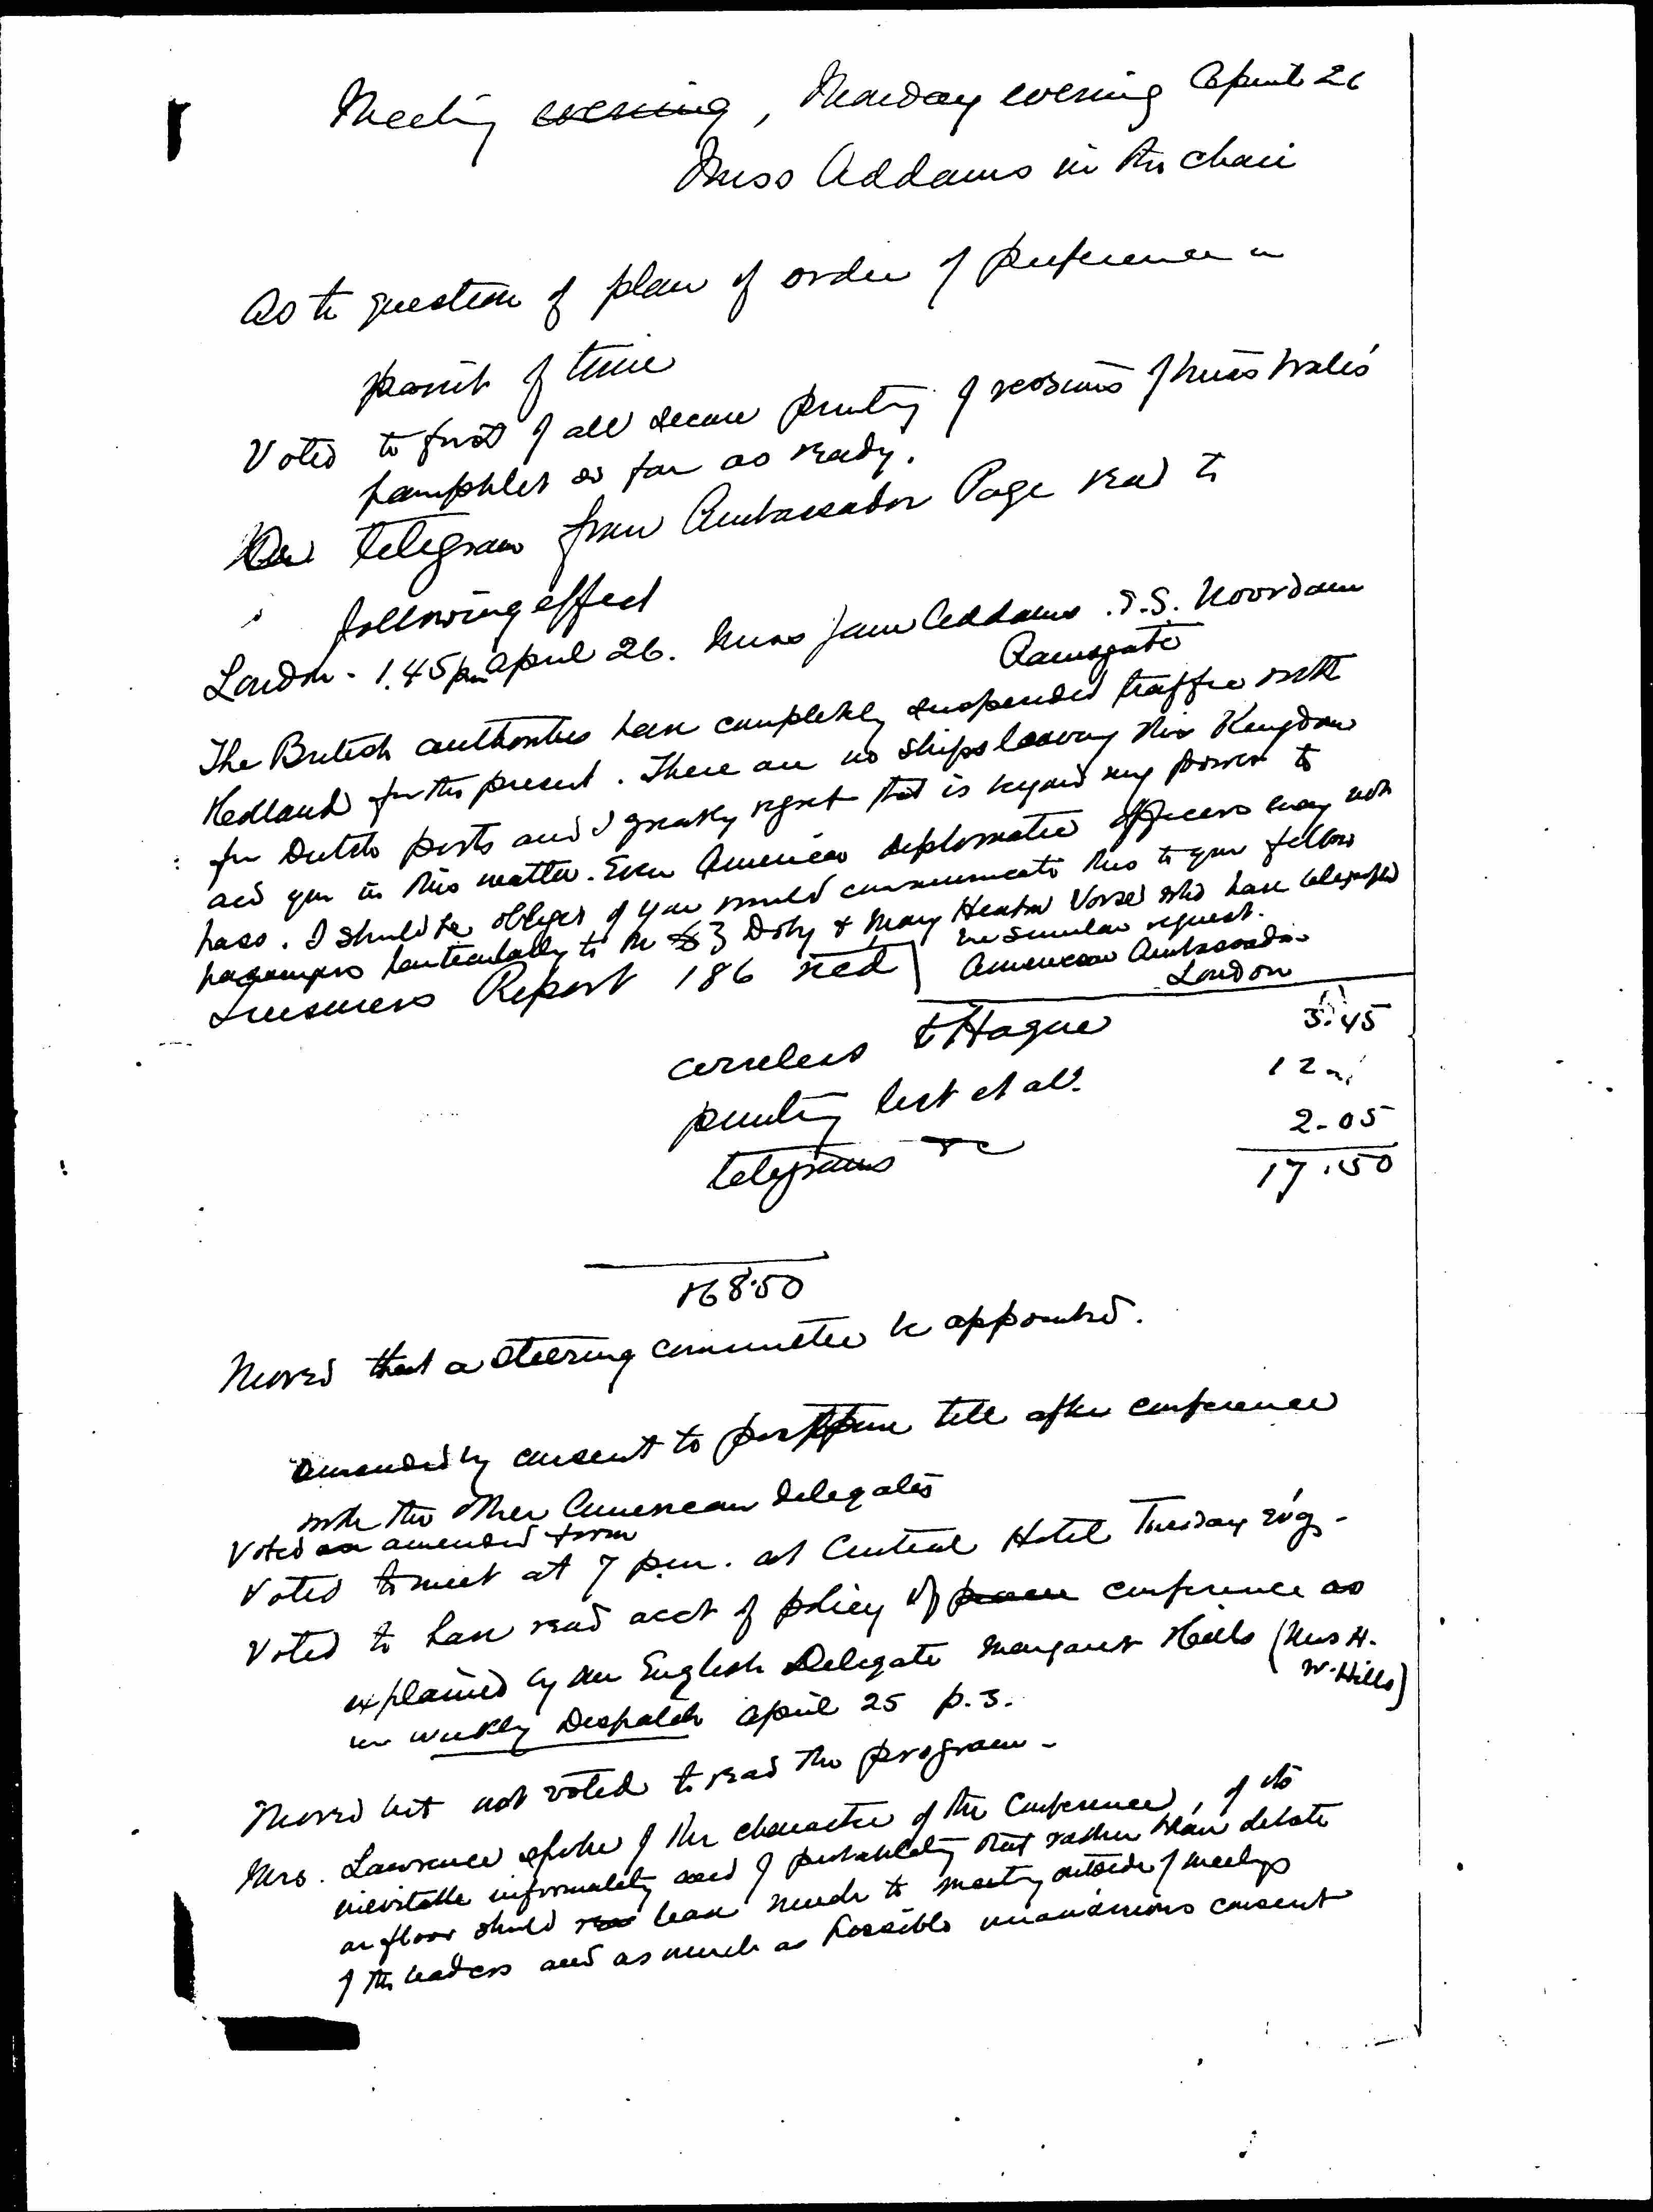 Meeting evening, Monday evening April 26
Miss Addams in the chair
As to question of plan of order of preference in
point of time
Voted to first of all secure printing of resumé of Miss Wales'
pamphlet as far as ready.
telegram from Ambassador Page read to
following effect
London - 1.45 pm April 26. Miss Jane Addams S.S. Noordam
Ramsgate
The British authorities have completely suspended traffic with
Holland for the present. There are no ships leaving this Kingdom
for Dutch ports and I greatly regret that is beyond my power to
aid you in this matter. Even American diplomatic officers may not
pass. I should be obliged if you would communicate this to your fellow
passengers particularly to Doty & Mary Heaton Vorse who have telegraphed
me similar request.
American Ambassador
London
Treasurers Report 186 recd
wireless to Hague 3.45
printing list et al. 12
telegrams &c 2.05
17.50
168.50
Moved that a steering committee be appointed.
Amended by consent to postpone till after conference
with the other American delegates
Voted as amended form
Voted to meet at 7 p.m. at Central Hotel Tuesday
Voted to have read acct of policy of peace conference as
explained by an English Delegate Margaret Hills (Mrs H.
W. Hills)
in Weekly Despatch April 25 p. 3.
Moved but not voted to read the program -
Mrs. Lawrence spoke of the character of the Conference, of its
inevitable informality and of probability that rather than debate
on floor should leave much to meeting outside of meetings
of the leaders and as much as possible unanimous consent